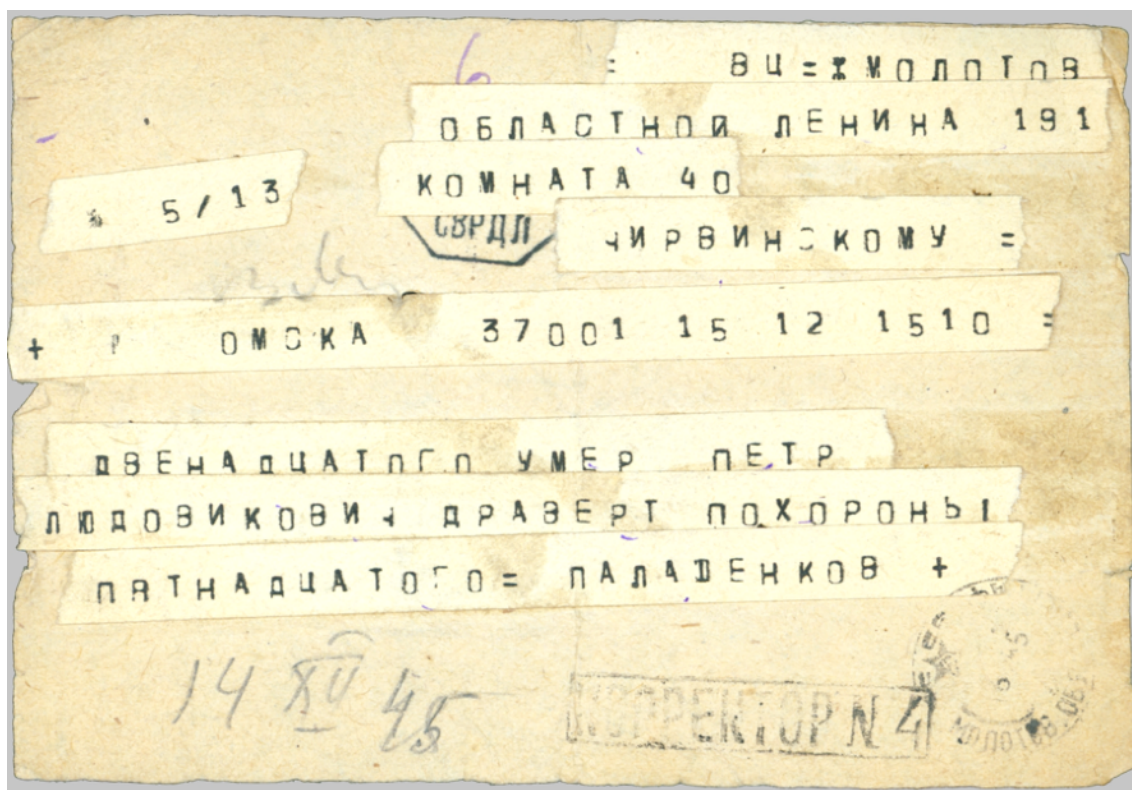 6
= ВЦ=МОЛОТОВ
ОБЛАСТНОЙ ЛЕНИНА 191
КОМНАТА 40
5/13
СВРДЛ
ЧИРВИНСКОМУ =
+ ОМСКА 37001 15 12 1510 =
ДВЕНАДЦАТОГО УМЕР ПЕТР
ЛЮДОВИКОВИЧ ДРАВЕРТ ПОХОРОНЫ
ПЯТНАДЦАТОГО= ПАЛАШЕНКОВ +
14 XII 45
КОРРЕКТОР N 4